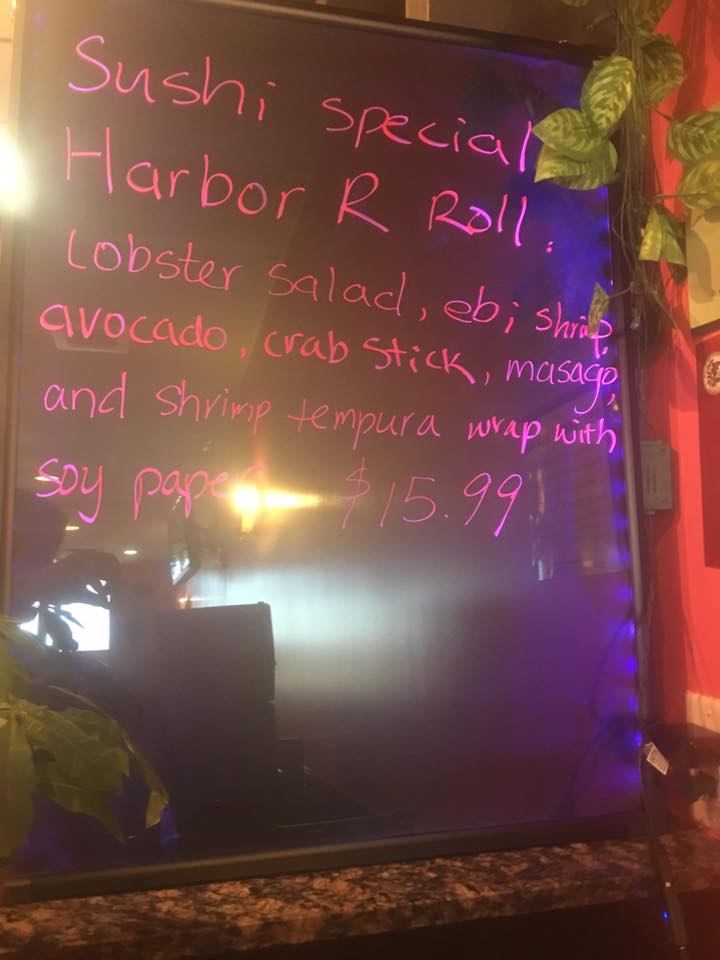 Sushi special
Harbor R Roll.
Lobster salad, ebi shrimp,
avocado, crab stick, masago,
and shrimp tempura wrap with
soy paper $15.99